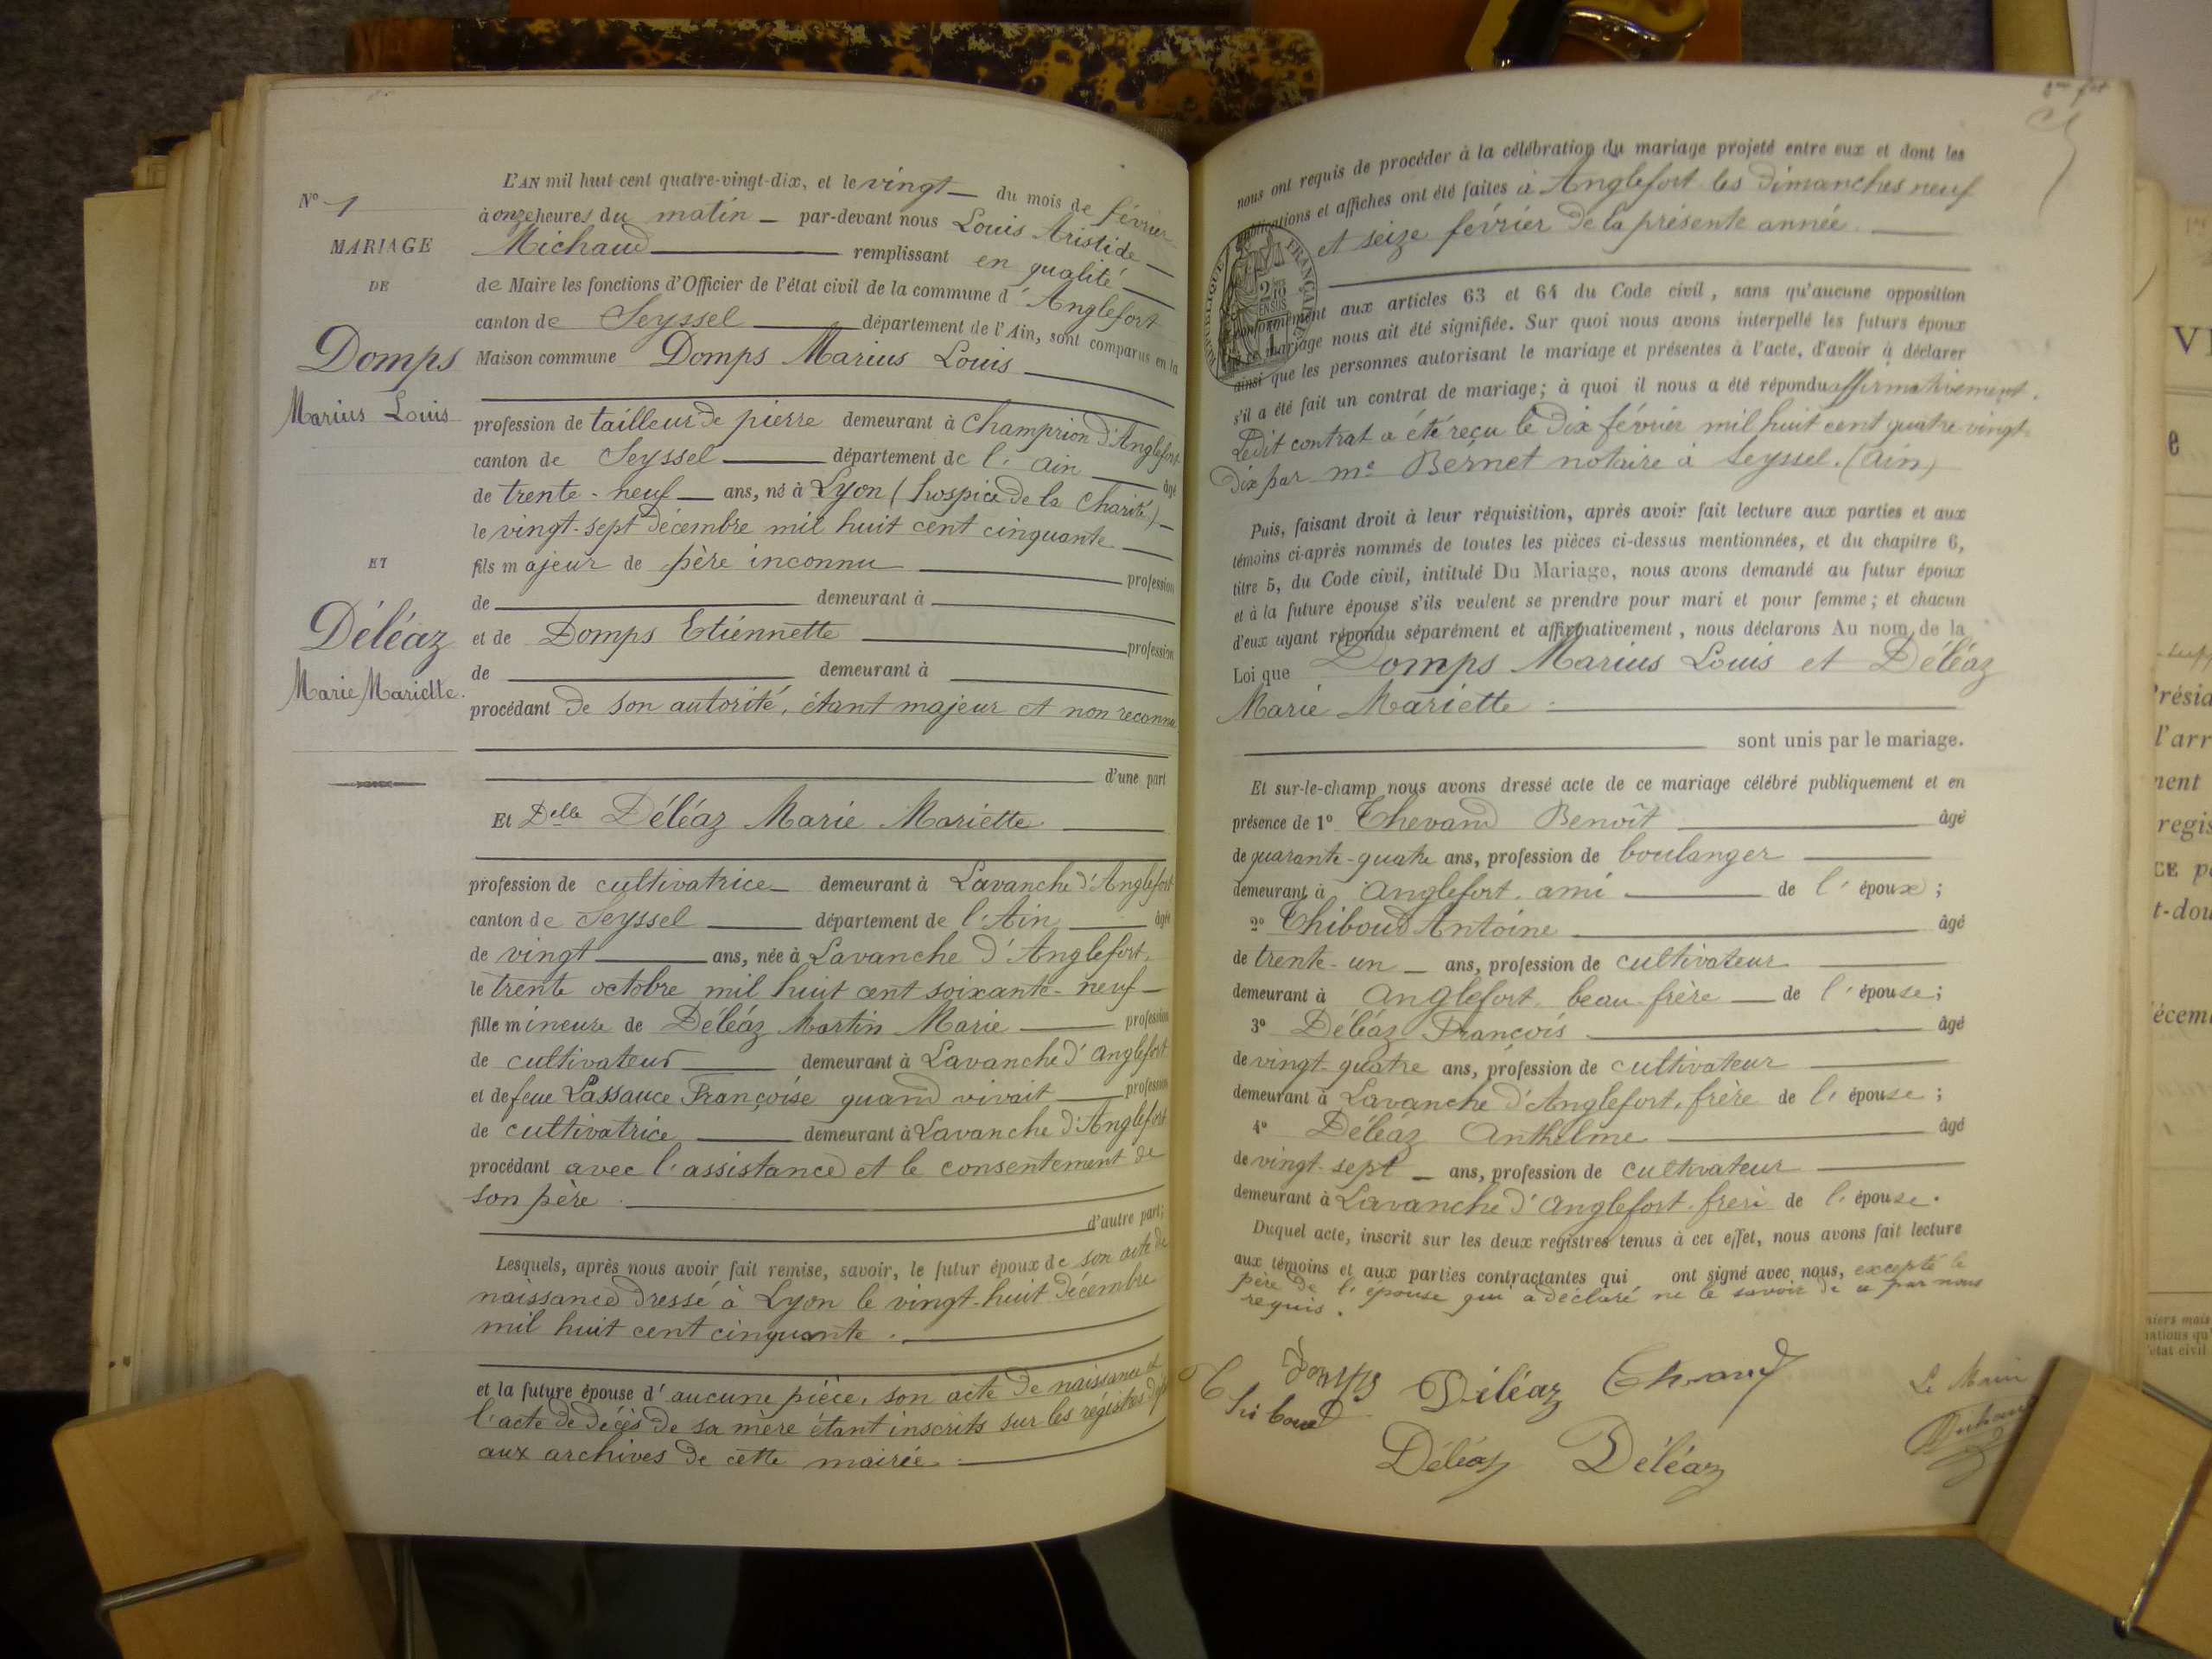 N° 1
MARIAGE
DE
Domps
Marius Louis
ET
Déléaz
Marie Mariette.
L'AN mil huit cent quatre-vingt-dix, et le vingt du mois de février
à onze heures du matin par-devant nous Louis Aristide
Michaud remplissant en qualité
de Maire les fonctions d'Officier de l'état civil de la commune d'Anglefort
canton de Seyssel département de l'Ain, sont comparus en la
Maison commune Domps Marius Louis
profession de tailleur de pierre demeurant à Champrion d'Anglefort
canton de Seyssel département de l'Ain âgé
de trente-neuf ans, né à Lyon (hospice de la Charité)
le vingt-sept décembre mil huit cent cinquante
fils majeur de père inconnu profession
de demeurant à
et de Domps Etiennette profession
de demeurant à
procédant de son autorité, étant majeur et non reconnu
d'une part
Et Delle Déléaz Marie Mariette
profession de cultivatrice demeurant à Lavanche d'Anglefort
canton de Seyssel département de l'Ain âgée
de vingt ans, née à Lavanche d'Anglefort,
le trente octobre mil huit cent soixante-neuf
fille mineure de Déléaz Martin Marie profession
de cultivateur demeurant à Lavanche d'Anglefort
et de feue Lassauce Françoise quand vivait profession
de cultivatrice demeurant à Lavanche d'Anglefort
procédant avec l'assistance et le consentement de
son père.
d'autre part;
Lesquels, après nous avoir fait remise, savoir, le futur époux de son acte de
naissance dressé à Lyon le vingt-huit décembre
mil huit cent cinquante.
et la future épouse d'aucune pièce, son acte de naissance et
l'acte de décès de sa mère étant inscrits sur les régistres
aux archives de cette mairie.
nous ont requis de procéder à la célébration du mariage projeté entre eux et dont les
publications et affiches ont été faites à Anglefort les dimanches neuf
et seize février de la présente année.
RÉPUBLIQUE FRANÇAISE
2/10 EN SUS
conformément aux articles 63 et 64 du Code civil, sans qu'aucune opposition
mariage nous ait été signifiée. Sur quoi nous avons interpellé les futurs époux
ainsi que les personnes autorisant le mariage et présentes à l'acte, d'avoir à déclarer
s'il a été fait un contrat de mariage; à quoi il nous a été répondu affirmativement.
Ledit contrat a été reçu le dix février mil huit cent quatre vingt-
dix par me Bernet notaire à Seyssel. (Ain)
Puis, faisant droit à leur réquisition, après avoir fait lecture aux parties et aux
témoins ci-après nommés de toutes les pièces ci-dessus mentionnées, et du chapitre 6,
titre 5, du Code civil, intitulé Du Mariage, nous avons demandé au futur époux
et à la future épouse s'ils veulent se prendre pour mari et pour femme; et chacun
d'eux ayant répondu séparément et affirmativement, nous déclarons Au nom de la
Loi que Domps Marius Louis et Déléaz
Marie Mariette
sont unis par le mariage.
Et sur-le-champ nous avons dressé acte de ce mariage célébré publiquement et en
présence de 1° Thevand Benoît âgé
de quarante-quatre ans, profession de boulanger
demeurant à Anglefort, ami de l'époux;
2° Thiboud Antoine âgé
de trente-un ans, profession de cultivateur
demeurant à Anglefort, beau-frère de l'épouse;
3° Déléaz François âgé
de vingt-quatre ans, profession de cultivateur
demeurant à Lavanche d'Anglefort, frère de l'épouse;
4° Déléaz Anthelme âgé
de vingt-sept ans, profession de cultivateur
demeurant à Lavanche d'Anglefort frère de l'épouse.
Duquel acte, inscrit sur les deux registres tenus à cet effet, nous avons fait lecture
aux témoins et aux parties contractantes qui ont signé avec nous, excepté le
père de l'épouse qui a déclaré ne le savoir de ce par nous
requis.
Domps Déléaz
Thiboud
Déléaz Déléaz
Le Maire